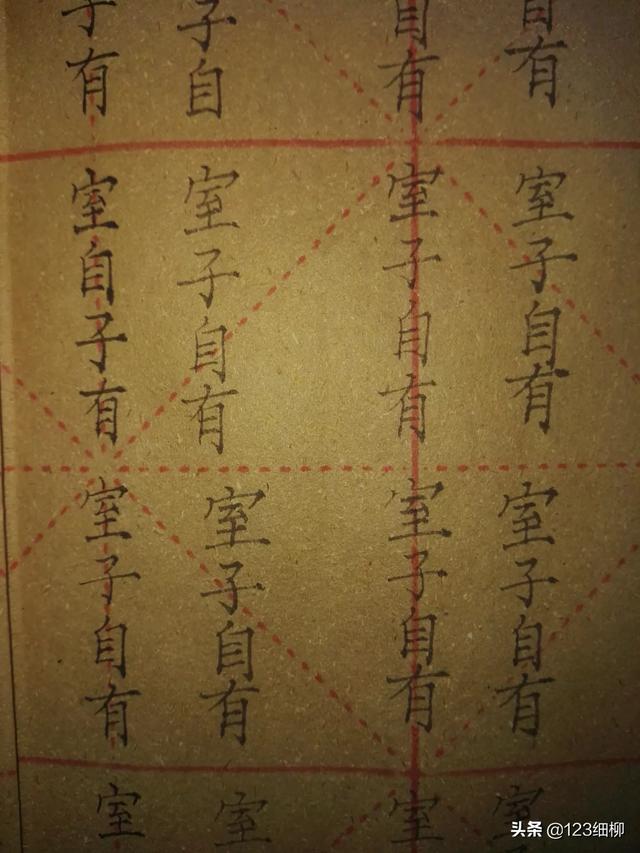 自有室子自有室子自有室
自有室子自有室子自有室
子自室子自有室子自有室
子有室自子有室子自有室
头条 @123细柳